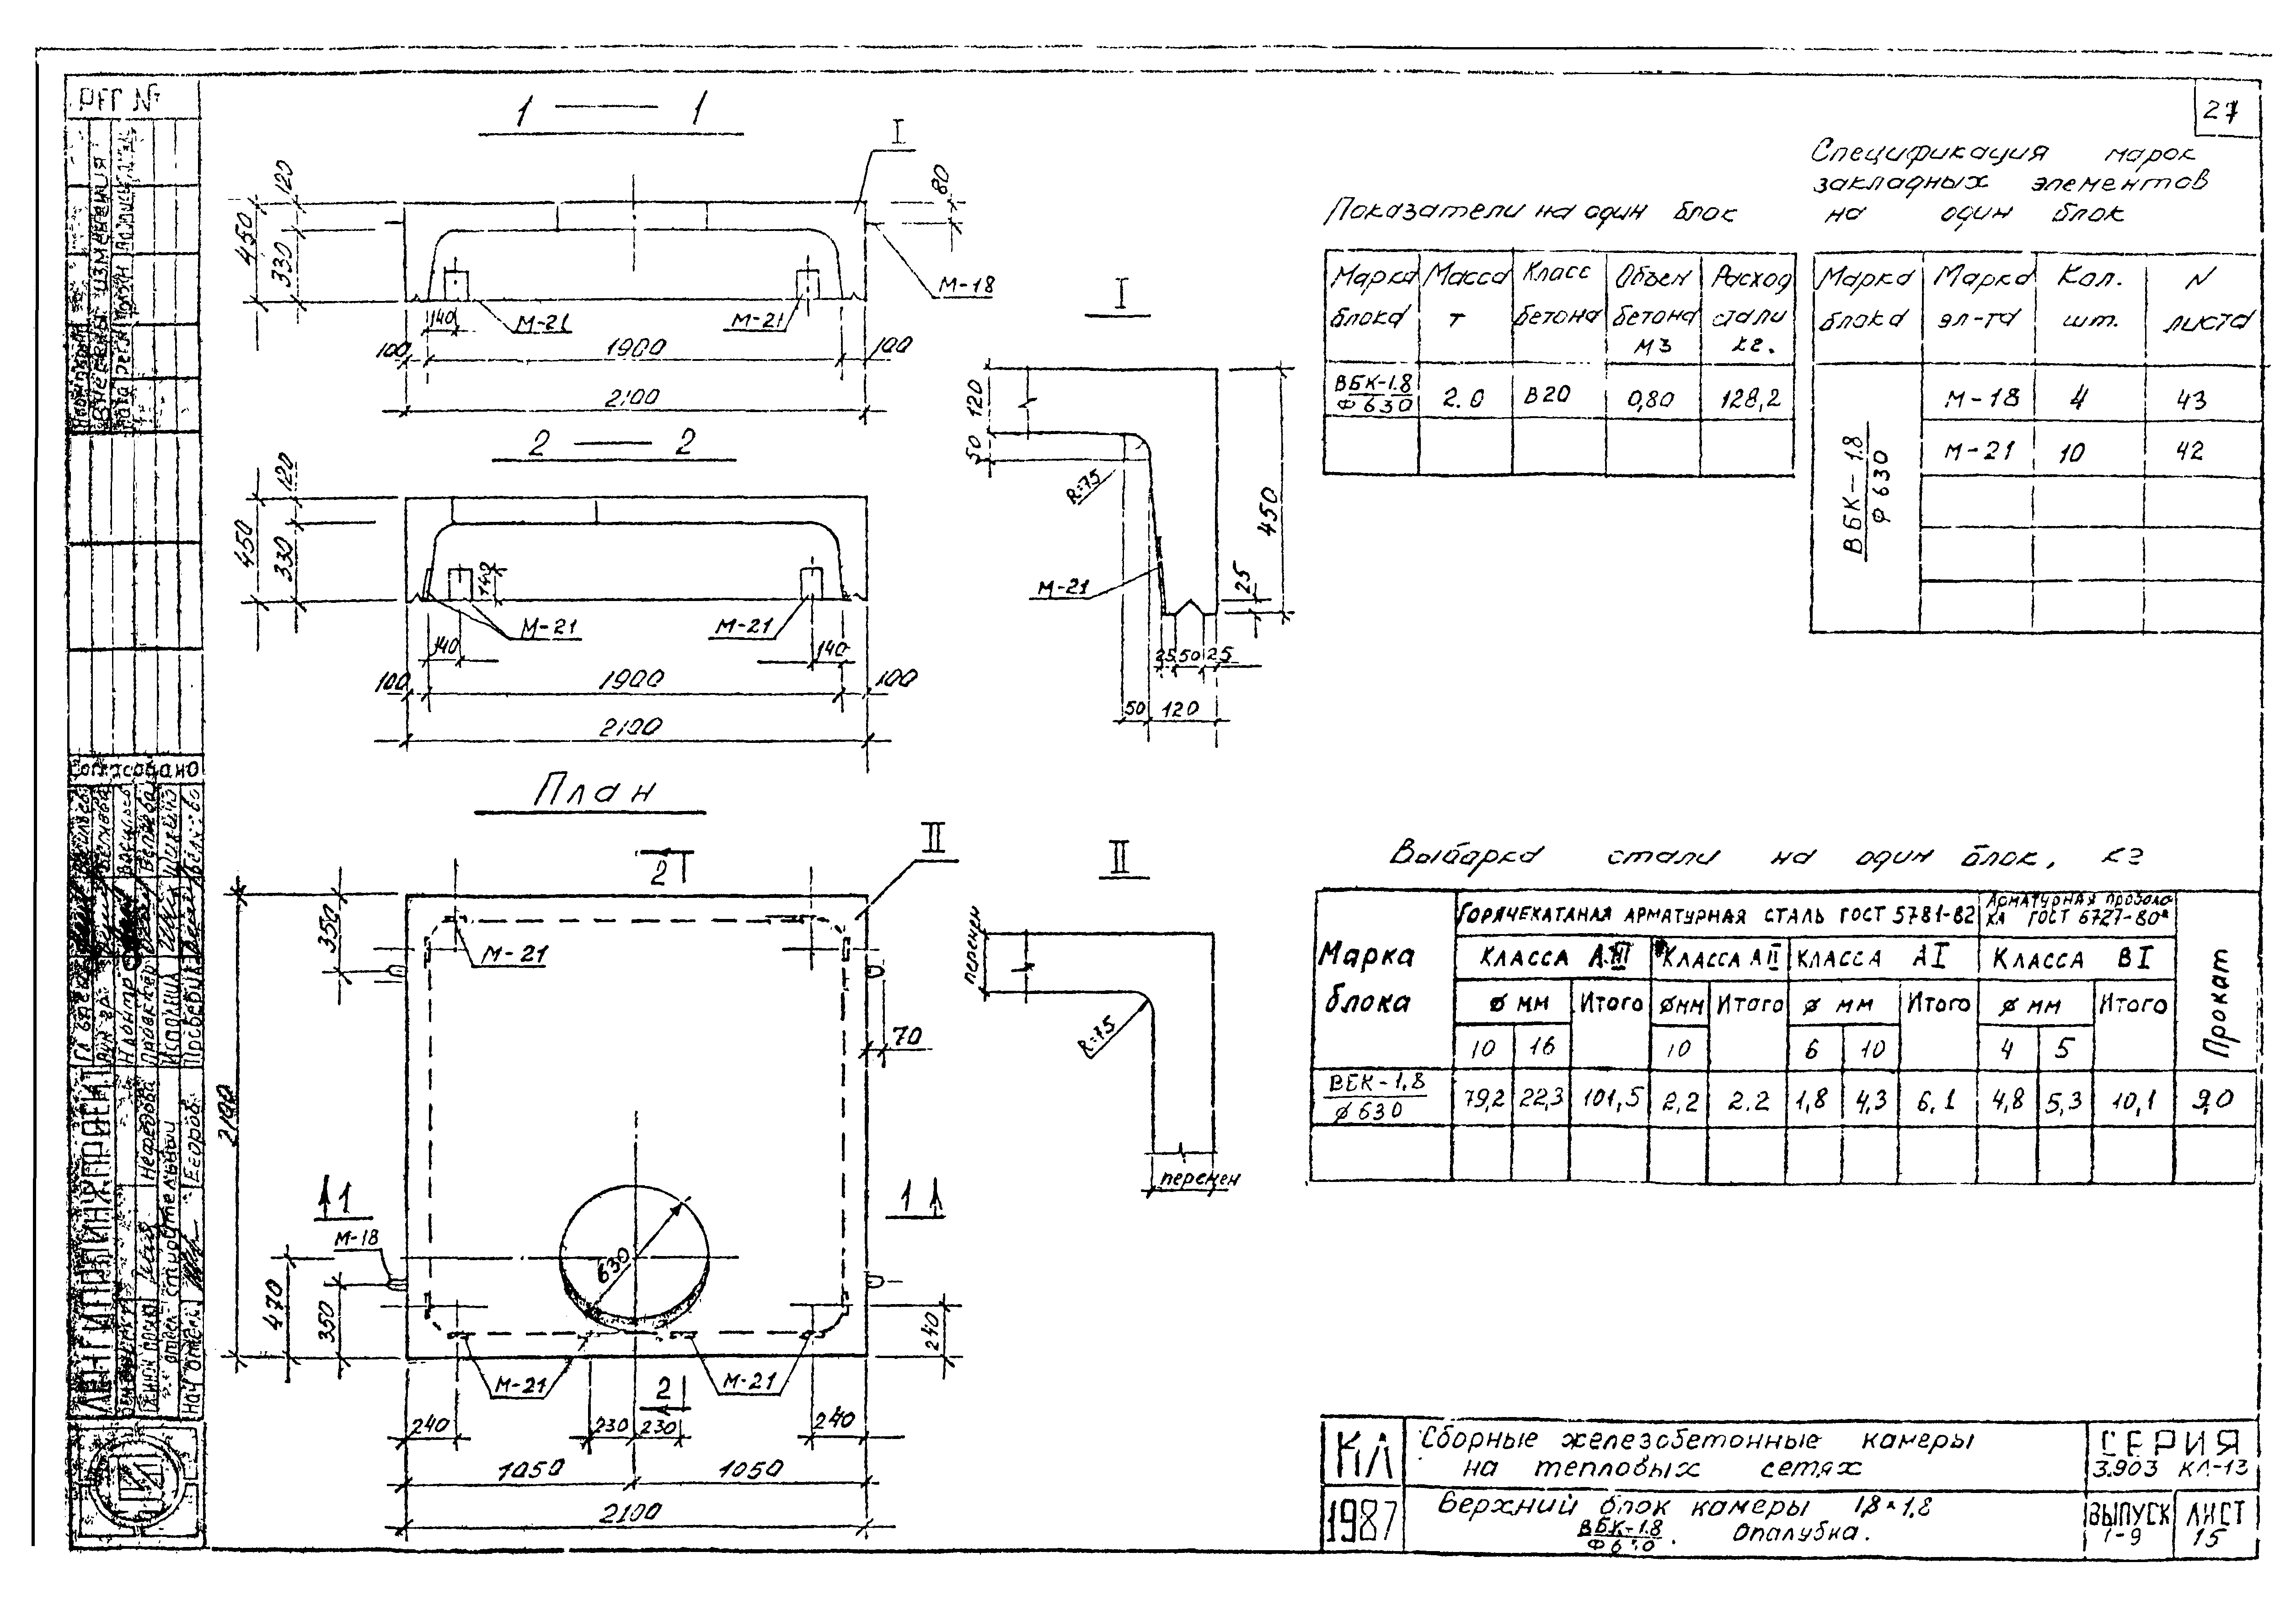 27
1 — 1
I
120
450
330
80
М-18
140
М-21
М-21
100
1900
100
2100
2 — 2
120
450
330
140
М-21
М-21
140
140
100
1900
100
2100
I
120
50
R=75
М-21
450
25
25 50 25
50 120
План
II
2
350
М-21
70
2100
1
1
М-18
470
350
630
240
М-21
М-21
2
240
230
230
240
1050
1050
2100
II
перемен
R=75
перемен
Показатели на один блок
Марка блока
Масса т
Класс бетона
Объем бетона м3
Расход стали кг.
ВБК-1.8
Ф630
2.0
В20
0,80
128,2
Спецификация марок
закладных элементов
на один блок
Марка блока
Марка эл-та
Кол. шт.
N листа
ВБК-1.8
Ф630
М-18 4 43
М-21 10 42
Выборка стали на один блок, кг
Марка блока
Горячекатаная арматурная сталь ГОСТ 5781-82
Арматурная проволока ГОСТ 6727-80*
Прокат
Класса АIII
Класса АII
Класса АI
Класса ВI
ф мм Итого фмм Итого ф мм Итого ф мм Итого
10 16 10 6 10 4 5
ВБК-1,8
ф630
79,2 22,3 101,5 2,2 2.2 1,8 4,3 6.1 4,8 5,3 10,1 9,0
КЛ
1987
Сборные железобетонные камеры
на тепловых сетях
СЕРИЯ
3.903 КЛ-13
Верхний блок камеры 1,8×1,8
ВБК-1.8
Опалубка.
ВЫПУСК
1-9
ЛИСТ
15
РЕГ №
Внесены изменения
Согласовано
ЛЕНГИПРОИНЖПРОЕКТ
Н.контр
Исполнил
Проверил